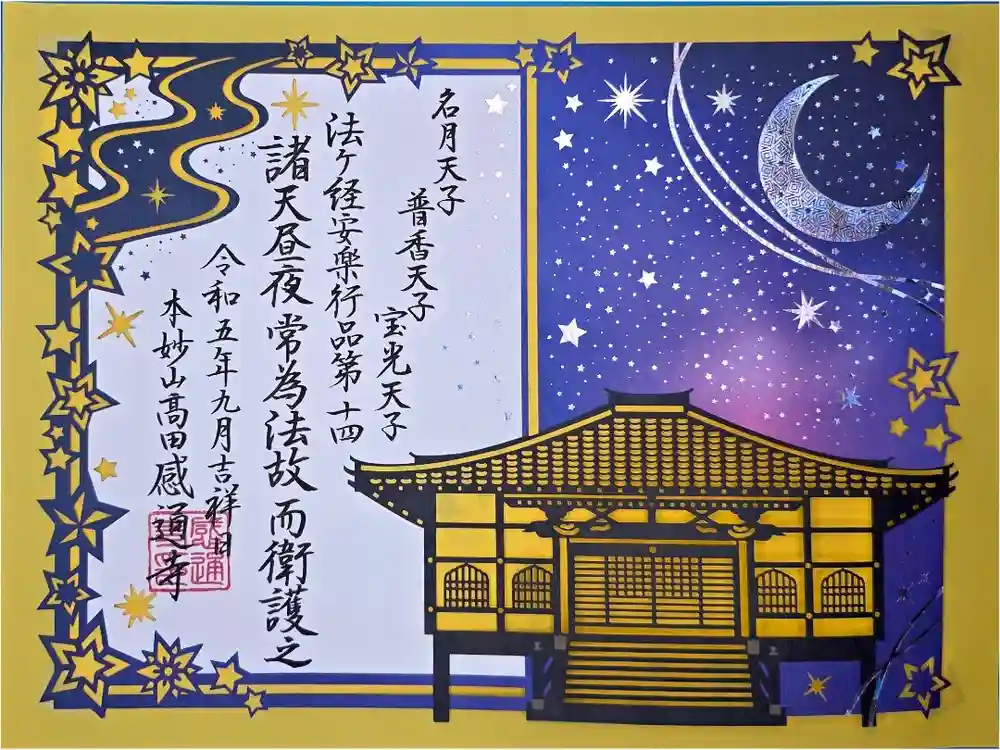 名月天子
普香天子
宝光天子
法ヶ経安楽行品第十四
諸天昼夜常為法故而衛護之
令和五年九月吉祥日
本妙山髙田感通寺